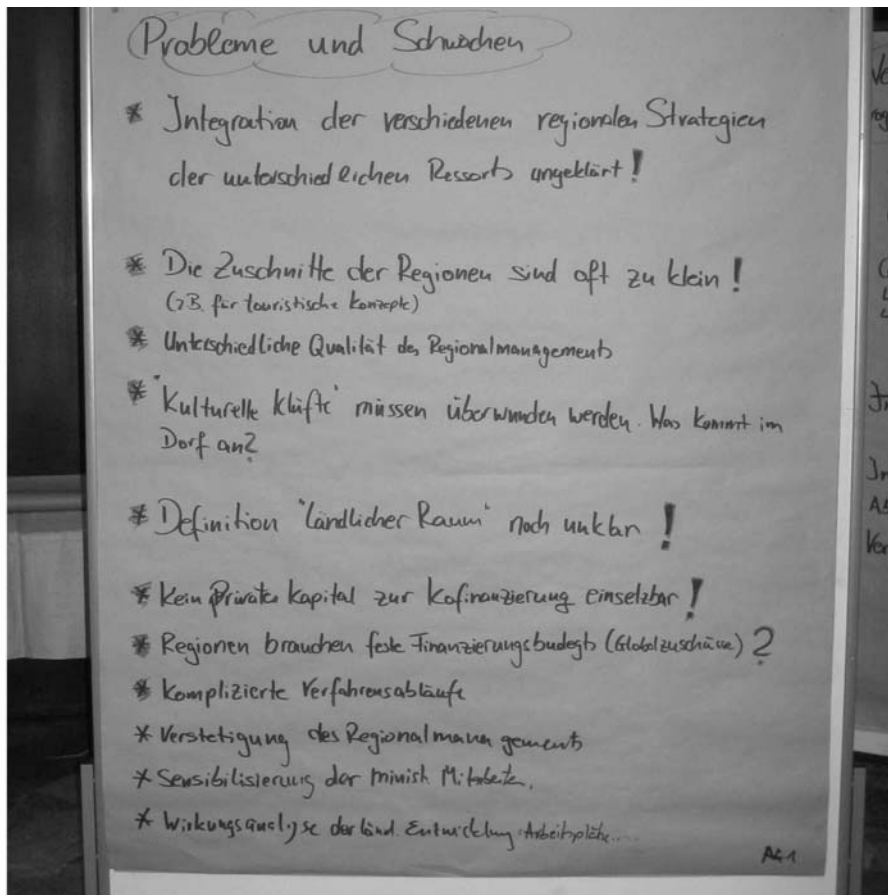 Probleme und Schwächen
* Integration der verschiedenen regionalen Strategien
der unterschiedlichen Ressorts ungeklärt!
* Die Zuschnitte der Regionen sind oft zu klein!
(z.B. für touristische Konzepte)
* Unterschiedliche Qualität des Regionalmanagements
* "Kulturelle Klüfte" müssen überwunden werden. Was kommt im
Dorf an?
* Definition "Ländlicher Raum" noch unklar!
* Kein Privates Kapital zur Kofinanzierung einsetzbar!
* Regionen brauchen feste Finanzierungsbudegts (Globalzuschüsse)?
* Komplizierte Verfahrensabläufe
* Verstetigung des Regionalmanagements
* Sensibilisierung der minist. Mitarbeiter.
* Wirkungsanalyse der länd. Entwicklung Arbeitsplätze....
AG 1